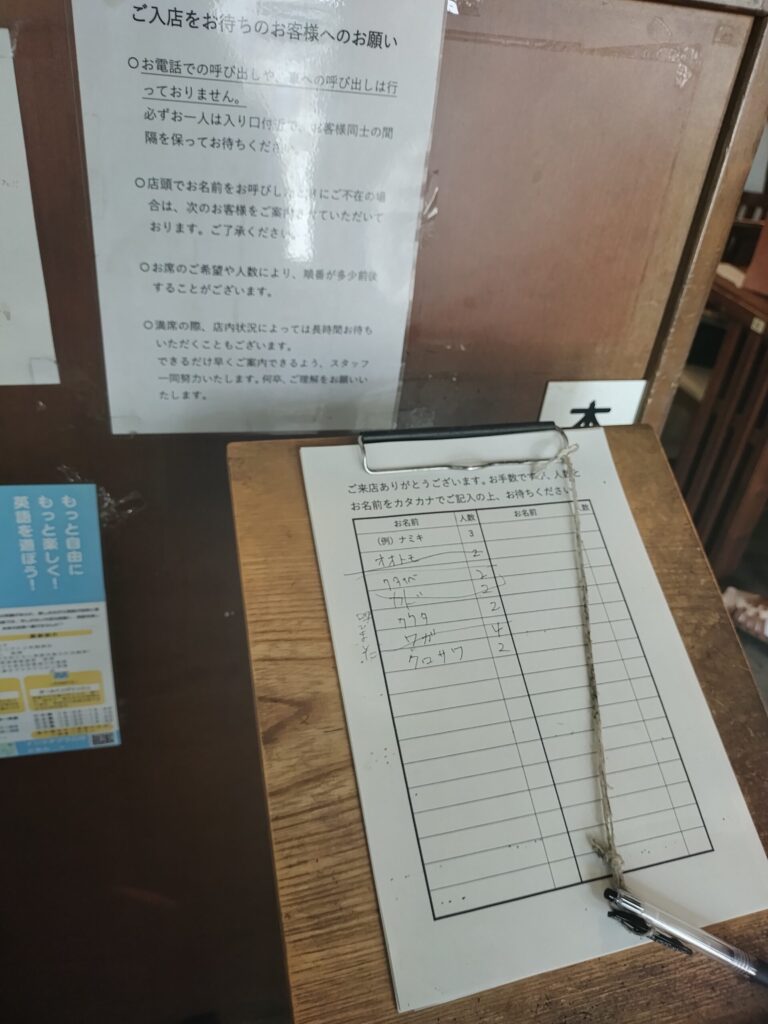 ご入店をお待ちのお客様へのお願い
○お電話での呼び出しや、車への呼び出しは行
っておりません。
必ずお一人は入り口付近で、お客様同士の間
隔を保ってお待ちください。
○店頭でお名前をお呼びした際にご不在の場
合は、次のお客様をご案内させていただいて
おります。ご了承ください。
○お席のご希望や人数により、順番が多少前後
することがございます。
○満席の際、店内状況によっては長時間お待ち
いただくこともございます。
できるだけ早くご案内できるよう、スタッフ
一同努力いたします。何卒、ご理解をお願いい
たします。
もっと自由に
もっと楽しく！
英語を遊ぼう！
ご来店ありがとうございます。お手数ですが、人数と
お名前をカタカナでご記入の上、お待ちください
お名前 人数 お名前 人数
(例)ナミキ 3
オオトモ 2
2
2
クワタ 2
ワガ 4
クロサワ 2